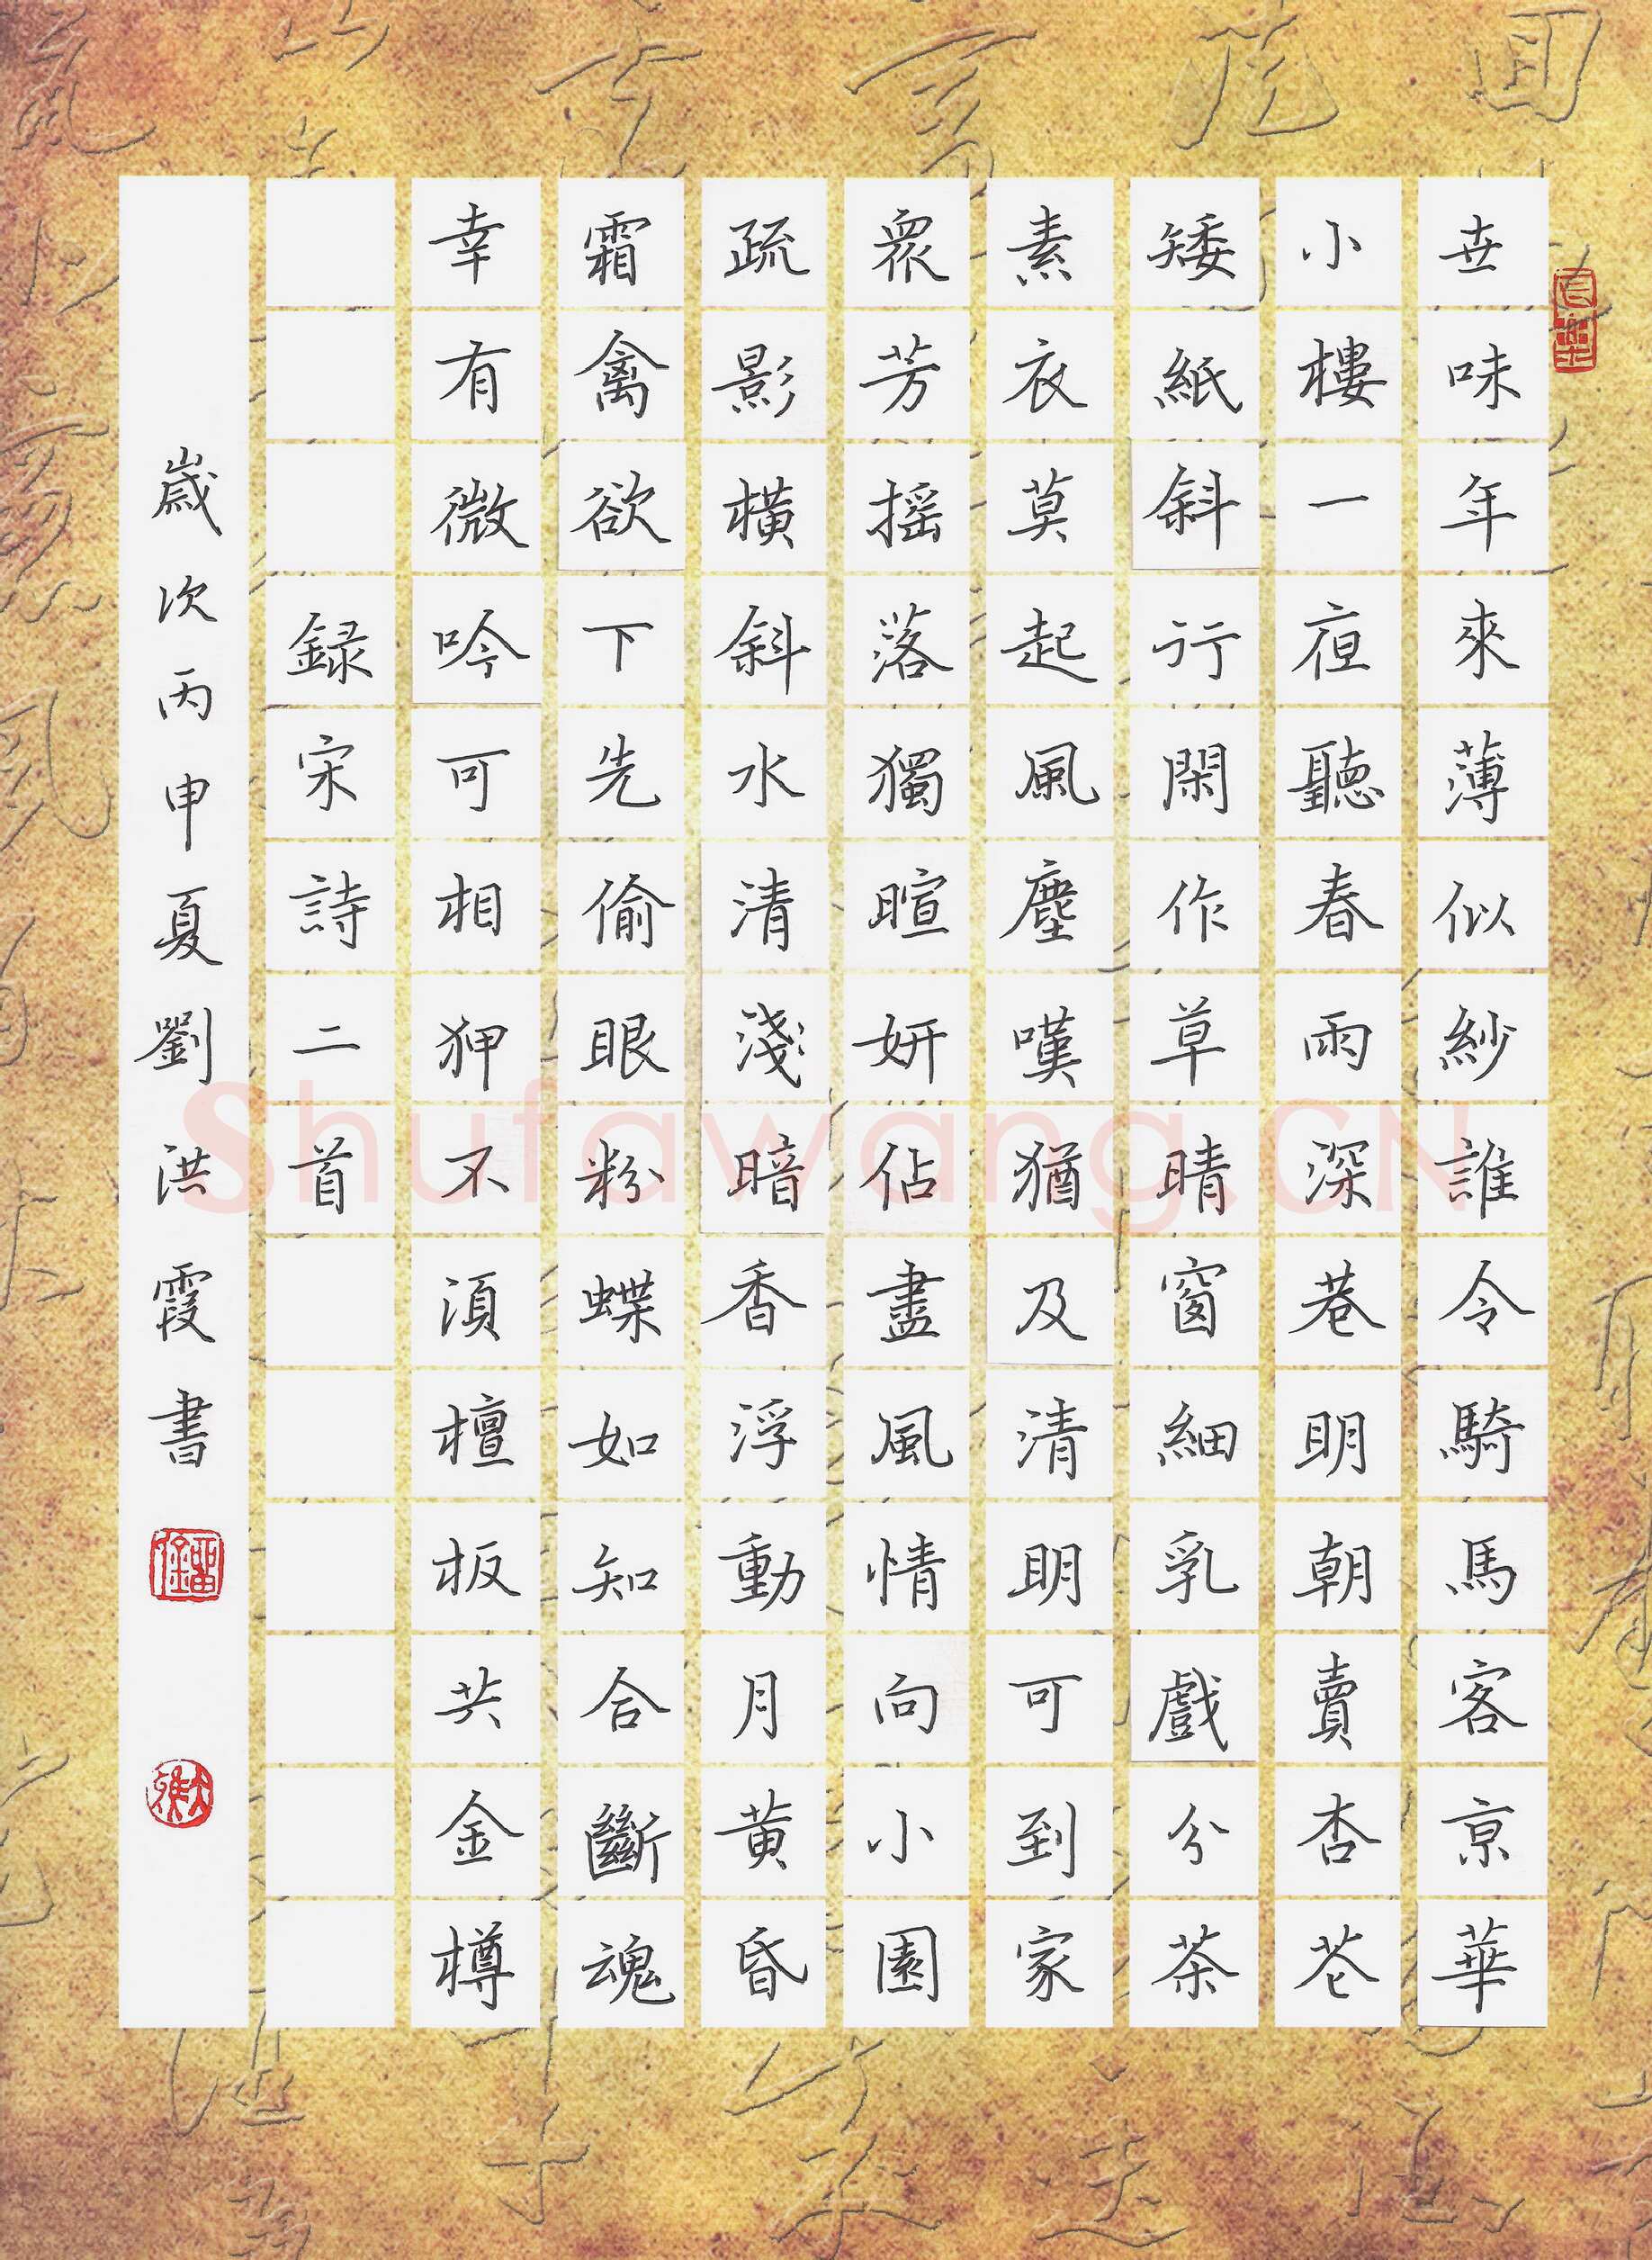 世味年來薄似紗誰令騎馬客京華
小樓一夜聽春雨深巷明朝賣杏花
矮紙斜行閑作草晴窗細乳戲分茶
素衣莫起風塵嘆猶及清明可到家
衆芳摇落獨暄妍佔盡風情向小園
疏影横斜水清淺暗香浮動月黄昏
霜禽欲下先偷眼粉蝶如知合斷魂
幸有微吟可相狎不須檀板共金樽
録宋詩二首
歲次丙申夏劉洪霞書
Shufawang.CN